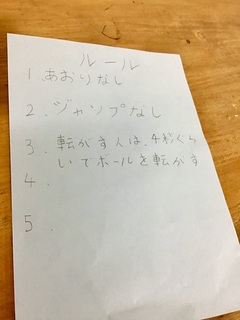 ルール
1.あおりなし
2.ジャンプなし
3.転がす人は、4秒ぐら
いてボールを転がす
4.
5.